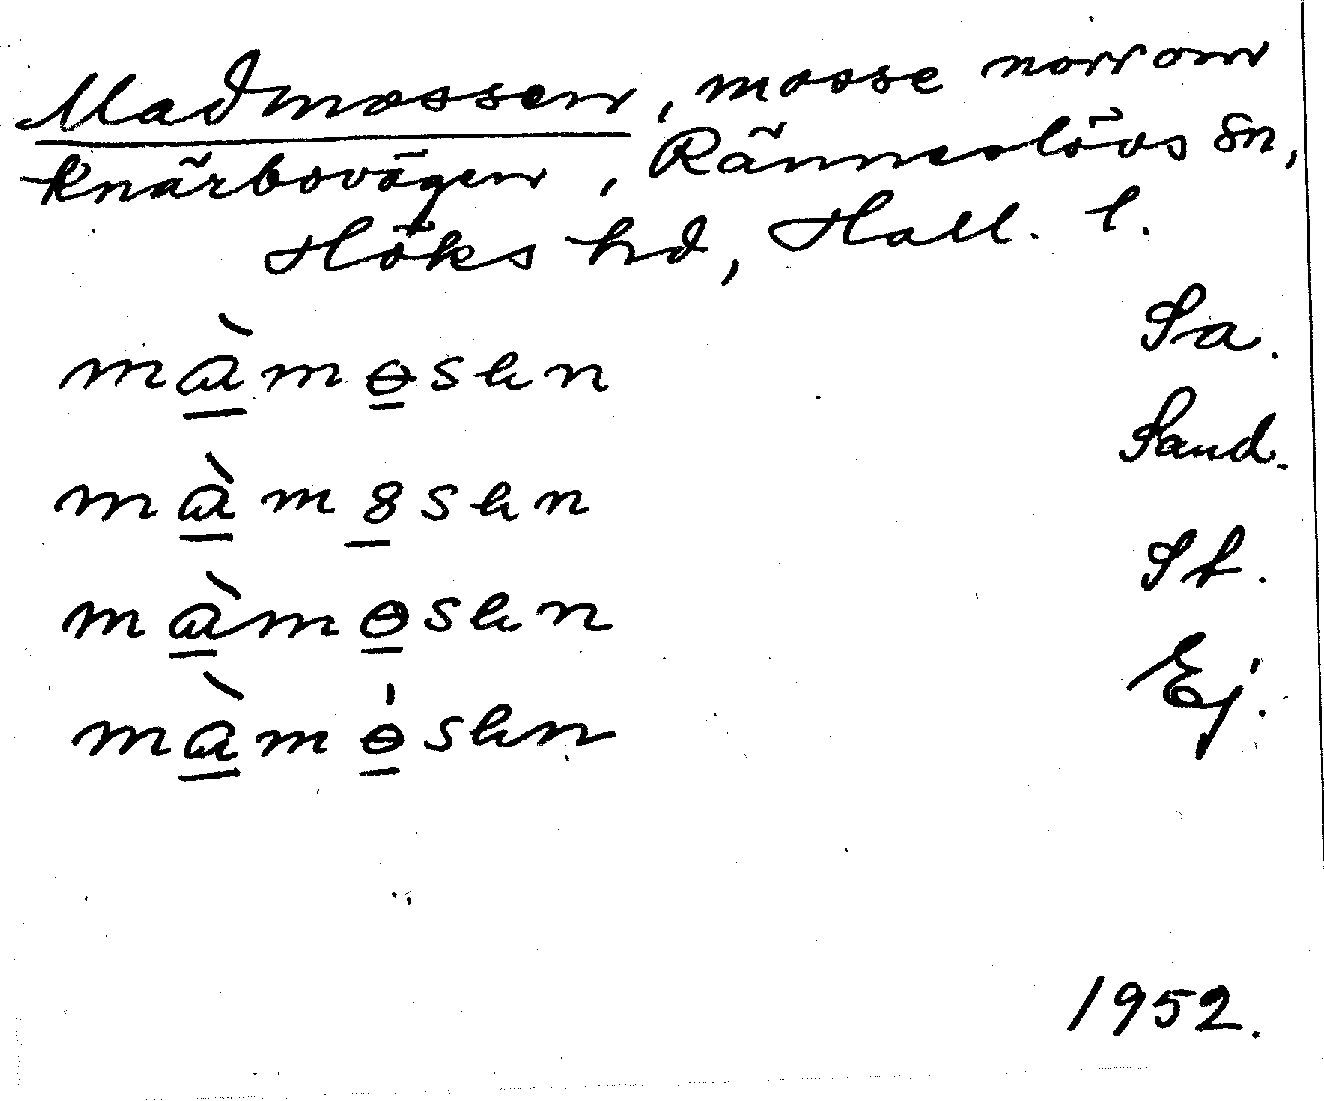 Madmossen, mosse norr om
Knärbovägen, Ränneslövs sn,
Höks hd, Hall. l.
màmɵsen Sa.
màm8sen Sand.
màmɵsen St.
màmɵ́sen Ej.
1952.